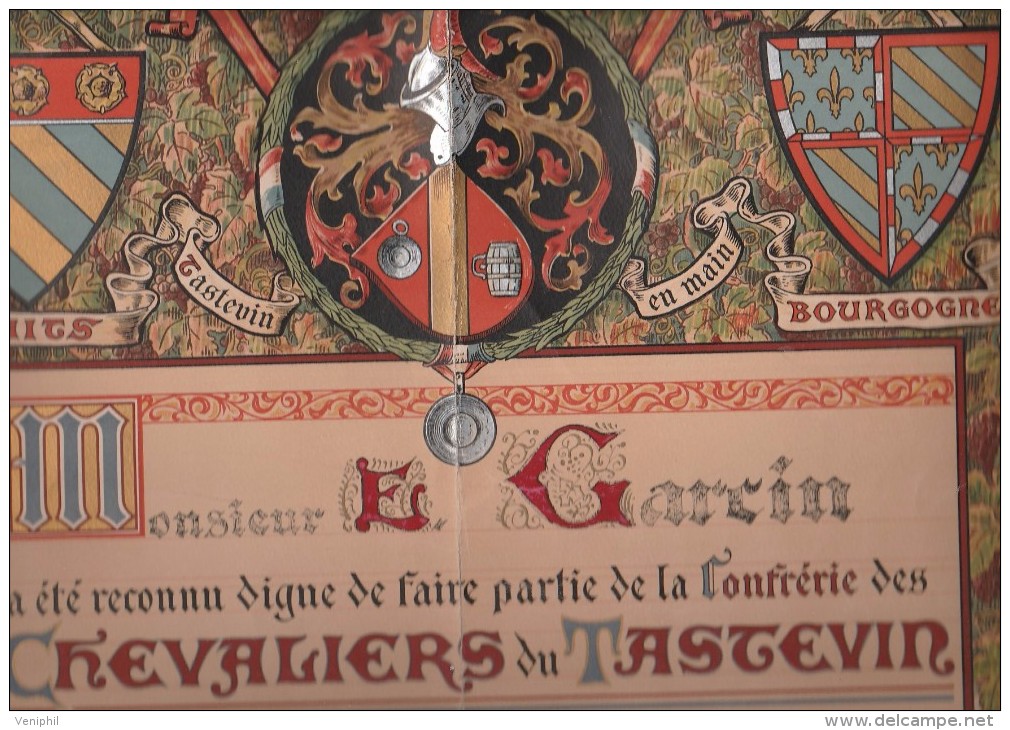 Tastevin
en main
UITS
BOURGOGNE
Monsieur E. Garcin
a été reconnu digne de faire partie de la Confrérie des
CHEVALIERS du TASTEVIN
Veniphil
www.delcampe.net